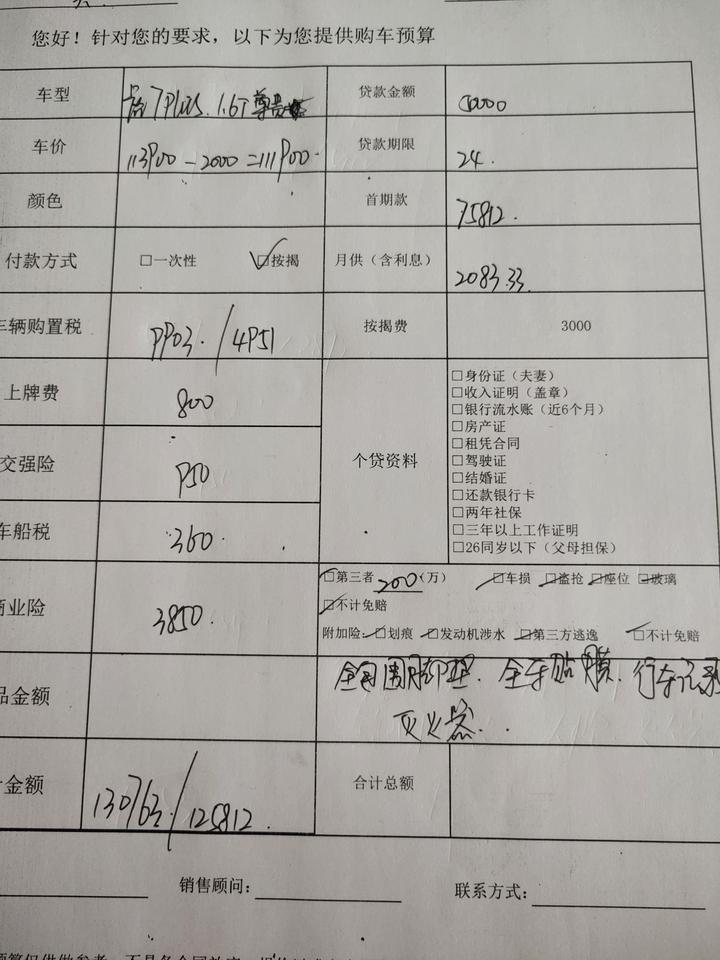 您好！针对您的要求，以下为您提供购车预算
车型 7 Plus. 1.6T 尊贵 贷款金额
车价 113900-2000=111900. 贷款期限 24.
颜色 首期款 75812.
付款方式 □一次性 ☑按揭 月供（含利息） 2083.33.
车辆购置税 9903. / 4951 按揭费 3000
上牌费 800 个贷资料
□身份证（夫妻）
□收入证明（盖章）
□银行流水账（近6个月）
□房产证
□租凭合同
□驾驶证
□结婚证
□还款银行卡
□两年社保
□三年以上工作证明
□26周岁以下（父母担保）
交强险 950
车船税 360.
商业险 3850.
☑第三者 200（万） ☑车损 ☑盗抢 ☑座位 ☑玻璃
☑不计免赔
附加险：☑划痕 ☑发动机涉水 ☑第三方逃逸 ☑不计免赔
品金额 全车贴膜. 行车记录
灭火器..
计金额 130763 / 125812. 合计总额
销售顾问： 联系方式：